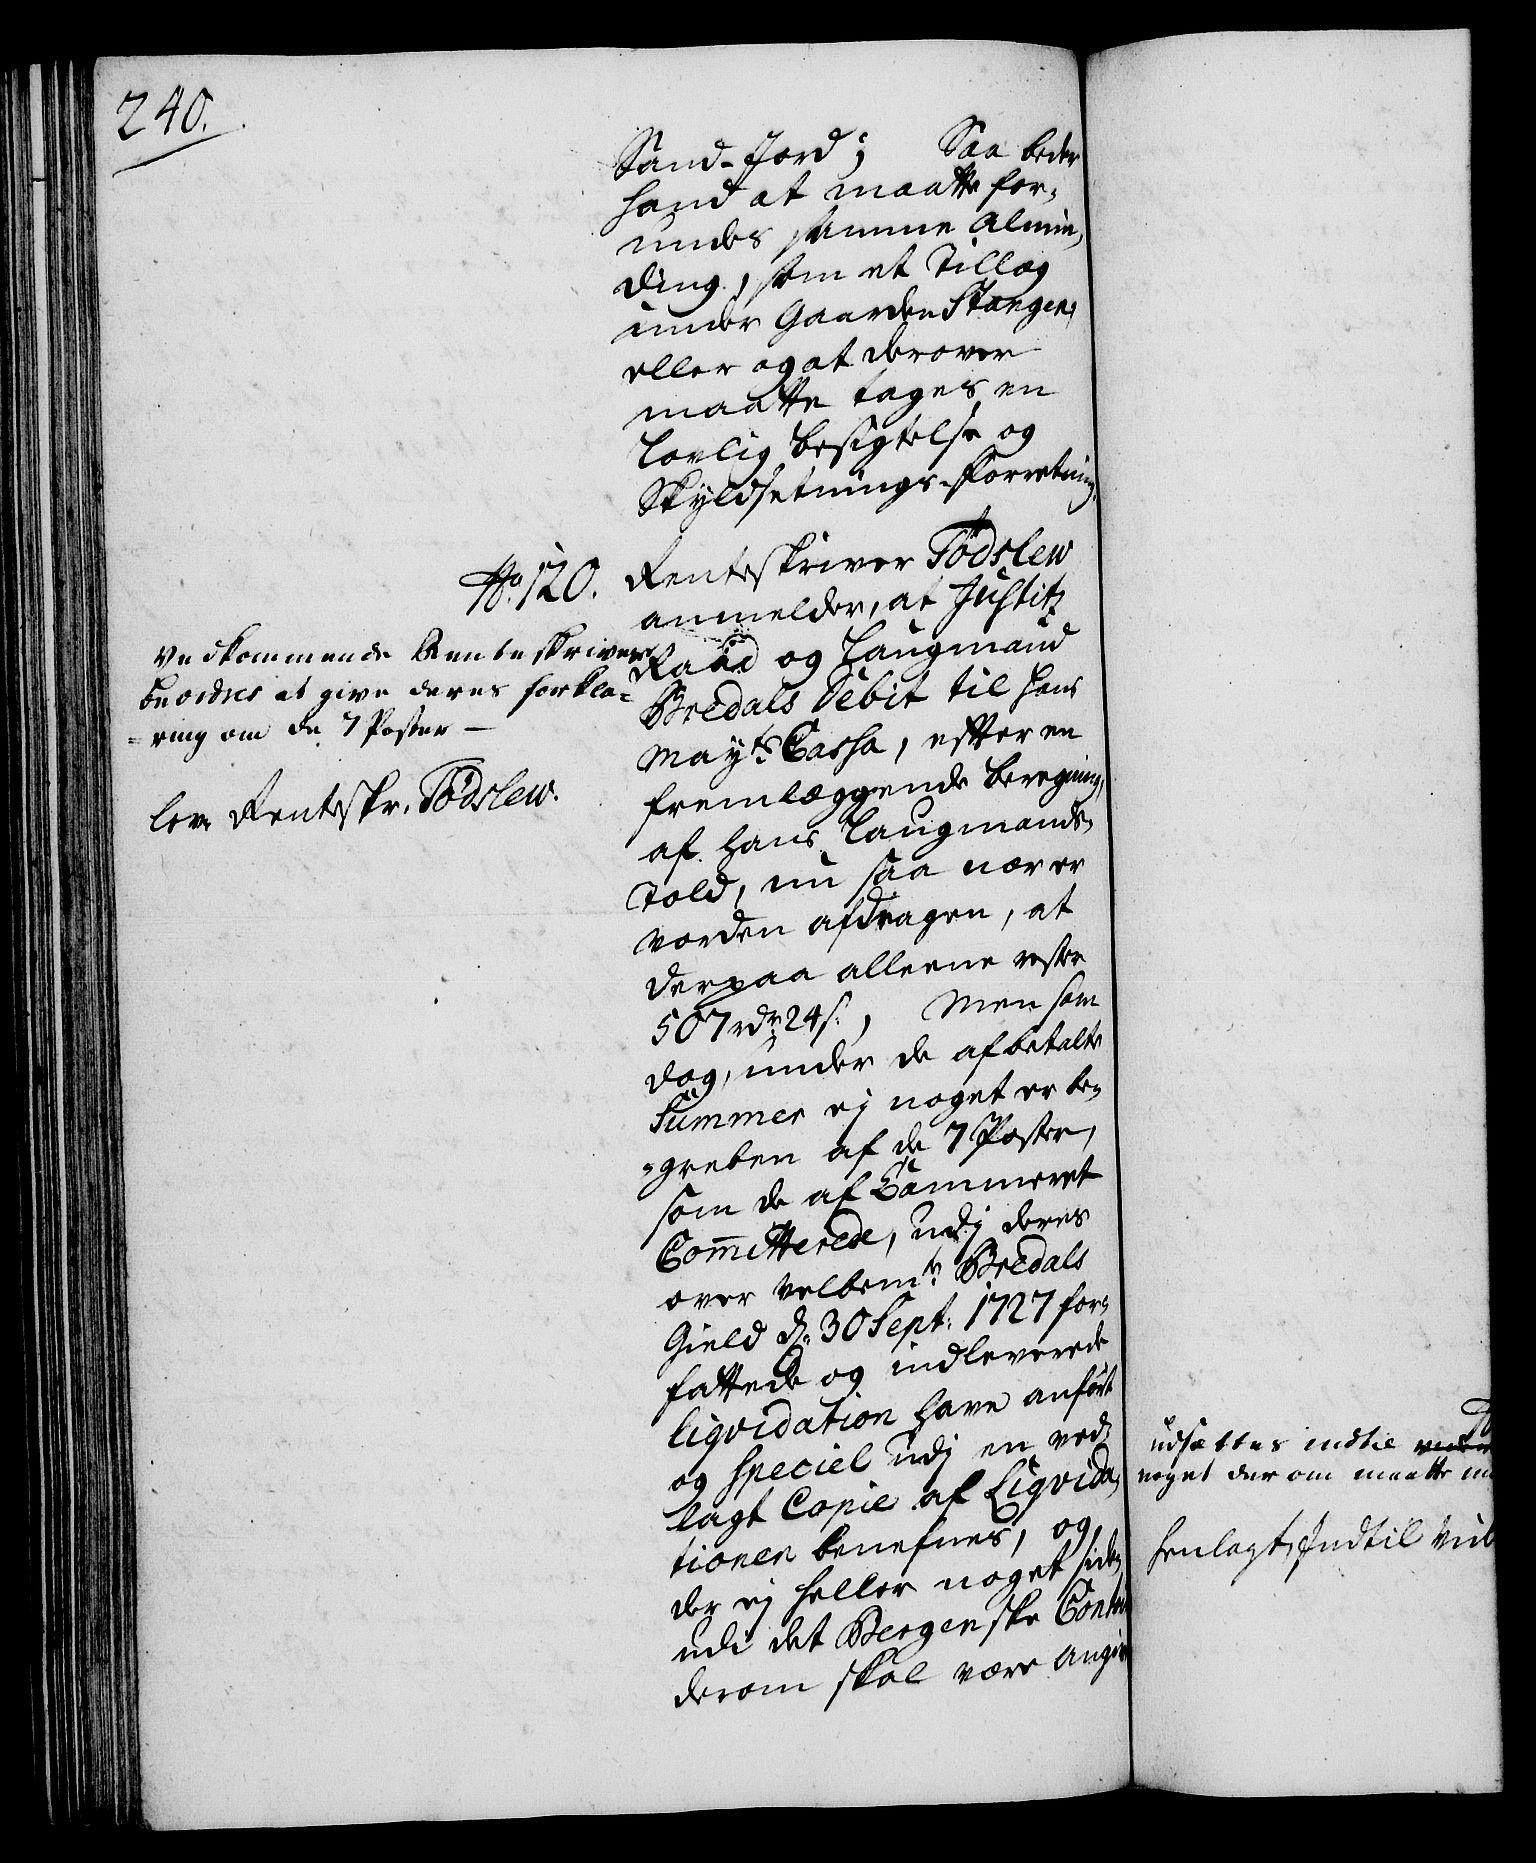 240.
Sand-Jord; Saa beder
hand at maatte for-
undes samme Almin-
ding, som et Tillæg
under Gaarden Stangen,
eller og at derover
maatte tages en
lovlig besigtelse og
Skyldsetnings-Forretning.
No. 120. Renteskriver Födslew
anmelder, at Justitz
Raad og Laugmand
Bredals Debit til Hans
Mayts. Cassa, efter en
fremlæggende beregning,
af hans Laugmands-
Told, nu saa nær er
vorden afdragen, at
derpaa alleene rester
507 rdr. 24 s., Men som
dog, under de afbetalte
Summer ej noget er be-
-greben af de 7 Poster,
som de af Cammeret
Committerede, udj deres
over velbemte. Bredals
Gield d. 30 Sept. 1727 for-
fattede og indleverede
liqvidation have anført
og speciel udj en ved-
lagt Copie af Liqvida-
tionen benefnes, og,
der ej heller noget siden
udi det Bergenske
derom skal være
Vedkommende Renteskrivere
beordres at give deres forkla-
-ring om de 7 Poster —
lev. Renteskr. Födslew.
udsættes indtil
noget derom maatte
henlagt, Indtil